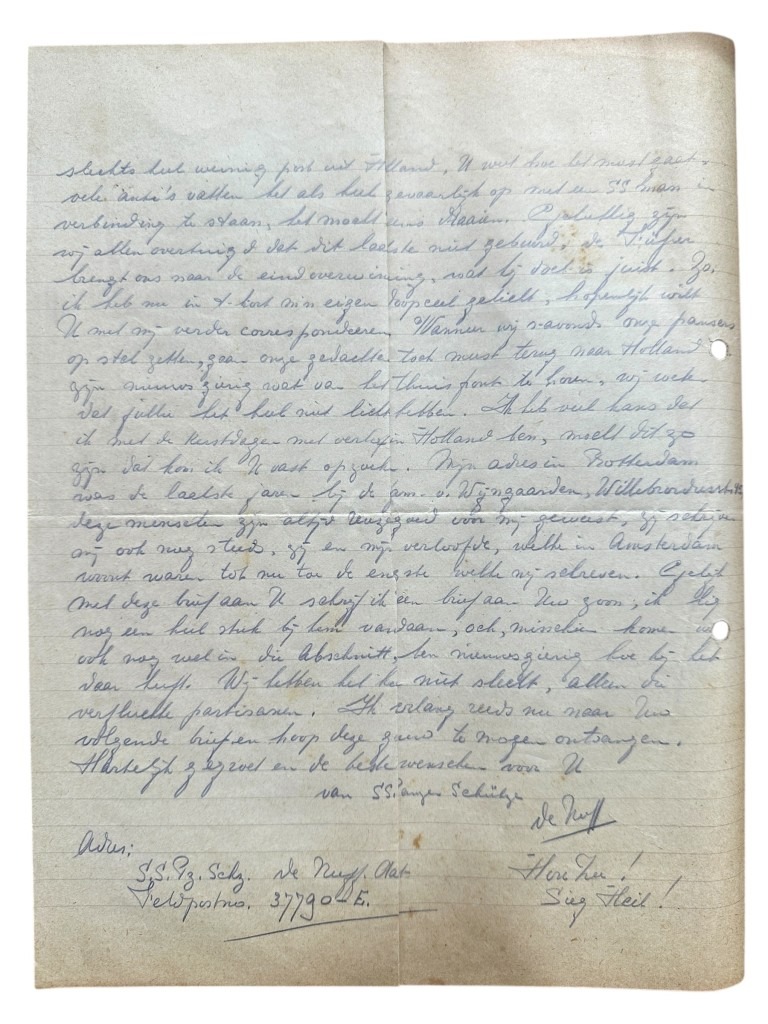 slechts heel weinig post uit Holland, U weet hoe het meest gaat
vele anti's vatten het als heel gevaarlijk op met een SS man in
verbinding te staan, het mocht eens draaien. Gelukkig zijn
wij allen overtuigd dat dit laatste niet gebeurd, de Führer
brengt ons naar de eindoverwinning, wat hij doet is juist. Zo,
ik heb nu in 't kort mijn eigen doopceel gelicht, hopenlijk wilt
U met mij verder correspondeeren. Wanneer wij s-avonds onze pansers
op stel zetten, gaan onze gedachten toch meest terug naar Holland
zijn nieuwsgierig wat van het thuisfront te horen, wij weten
dat jullie het heel niet licht hebben. Ik heb veel kans dat
ik met de Kerstdagen met verlof in Holland ben, mocht dit zo
zijn dat kom ik U vast opzoeken. Mijn adres in Rotterdam
was de laatste jaren bij de fam. v. Wijngaarden, Willebrordusstr.
deze menschen zijn altijd voor mij geweest, zij schrijven
mij ook nog steeds, zij en mijn verloofde, welke in Amsterdam
woont waren tot nu toe de enigste welke mij schreven. Gelijk
met deze brief aan U schrijf ik een brief aan Uw zoon, ik lig
nog een heel stuk bij hem vandaan, och, misschien komen we
ook nog wel in die Abschnitt, ben nieuwsgierig hoe hij het
daar heeft. Wij hebben het hier niet slecht, alleen die
verfluchte partisanen. Ik verlang reeds nu naar Uw
volgende brief en hoop deze gauw te mogen ontvangen.
Hartelijk gegroet en de beste wenschen voor U
van SS Panzer Schütze
Adres:
S.S. Pz. Schz. de
Feldpostno. 37790-E.
Hou Zee!
Sieg Heil!